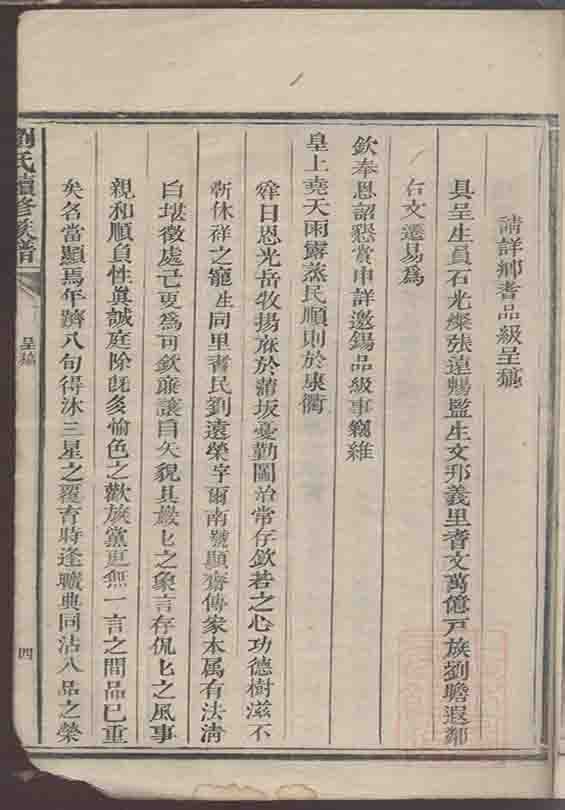 請詳鄉耆品級呈稿
具呈生員石光燦張遠賜監生文邦義里耆文萬億戶族劉瞻遐鄰
右文遷易為
欽奉恩詔懇賞申詳邀錫品級事竊維
皇上堯天雨露蒸民順則於康衢
舜日恩光岳牧揚庥於蒲坂憂勤圖治常存欽若之心功德樹滋不
漸休祥之寵生同里耆民劉遠榮字爾南號顯齋傳家本属有法清
白堪徵處己更為可欽廉讓自矢貌具嚴匕之象言存侃匕之風事
親和順負性真誠庭除旣多愉色之歡族黨更無一言之間品已重
矣名當顯焉年躋八旬得沐三星之覆育時逢曠典同沾八品之榮
劉氏續修族譜
呈稿
四